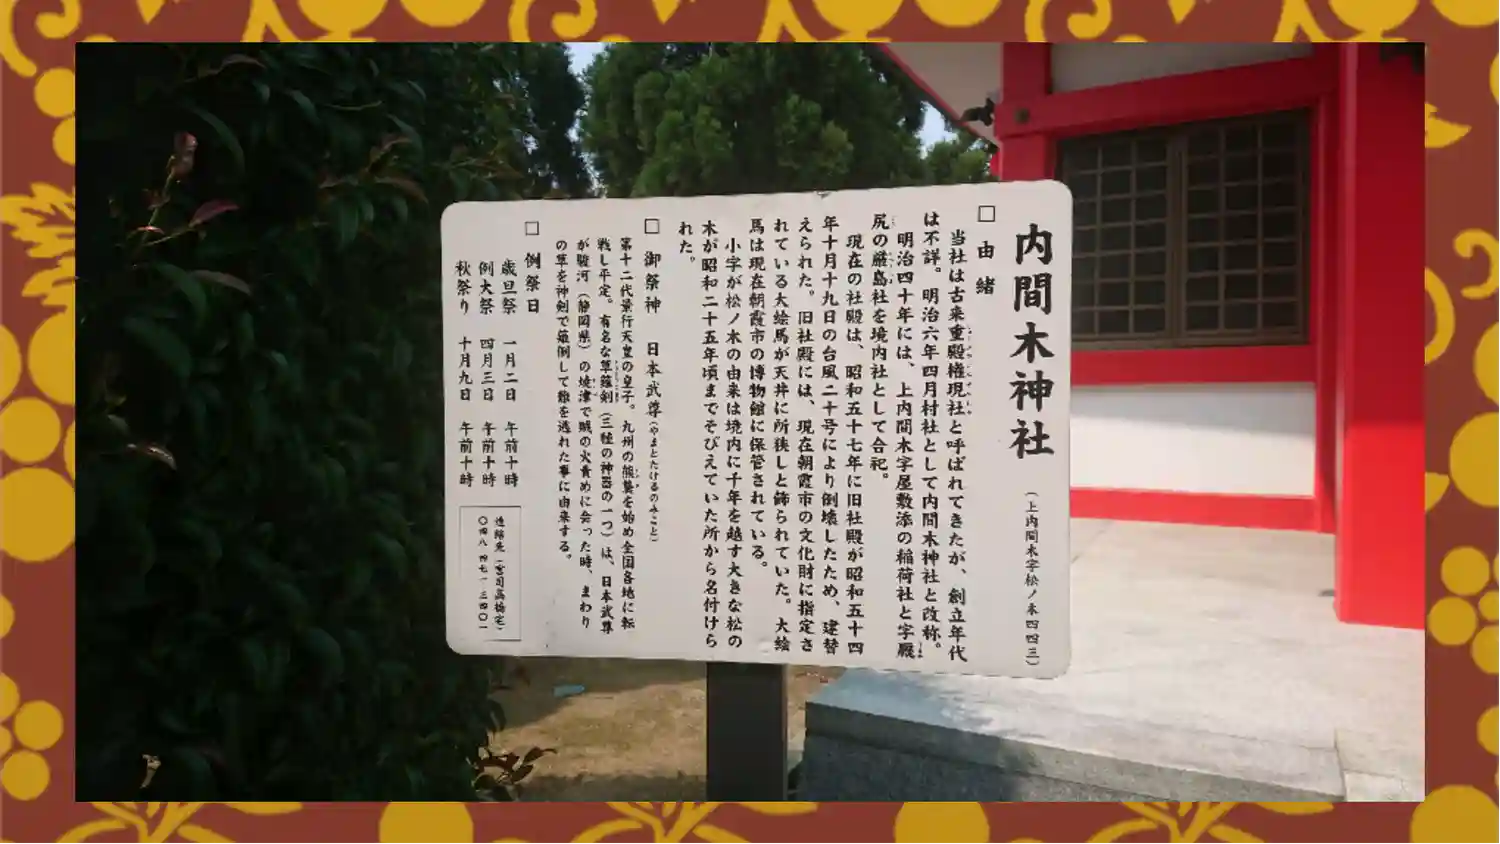 内間木神社（上内間木字松ノ木四四三）
□由緒
当社は古来重殿権現社と呼ばれてきたが、創立年代
は不詳。明治六年四月村社として内間木神社と改称。
明治四十年には、上内間木字屋敷添の稲荷社と字厩
尻の厳島社を境内社として合祀。
現在の社殿は、昭和五十七年に旧社殿が昭和五十四
年十月十九日の台風二十号により倒壊したため、建替
えられた。旧社殿には、現在朝霞市の文化財に指定さ
れている大絵馬が天井に所狭しと飾られていた。大絵
馬は現在朝霞市の博物館に保管されている。
小字が松ノ木の由来は境内に千年を越す大きな松の
木が昭和二十五年頃までそびえていた所から名付けら
れた。
□御祭神 日本武尊（やまとたけるのみこと）
第十二代景行天皇の皇子。九州の熊襲を始め全国各地に転
戦し平定。有名な草薙剣（三種の神器の一つ）は、日本武尊
が駿河（静岡県）の焼津で賊の火責めに会った時、まわり
の草を神剣で薙倒して難を逃れた事に由来する。
□例祭日
歳旦祭 一月二日 午前十時
例大祭 四月三日 午前十時
秋祭り 十月九日 午前十時
連絡先（宮司高橋宅）
〇四八－四七一－三四〇一